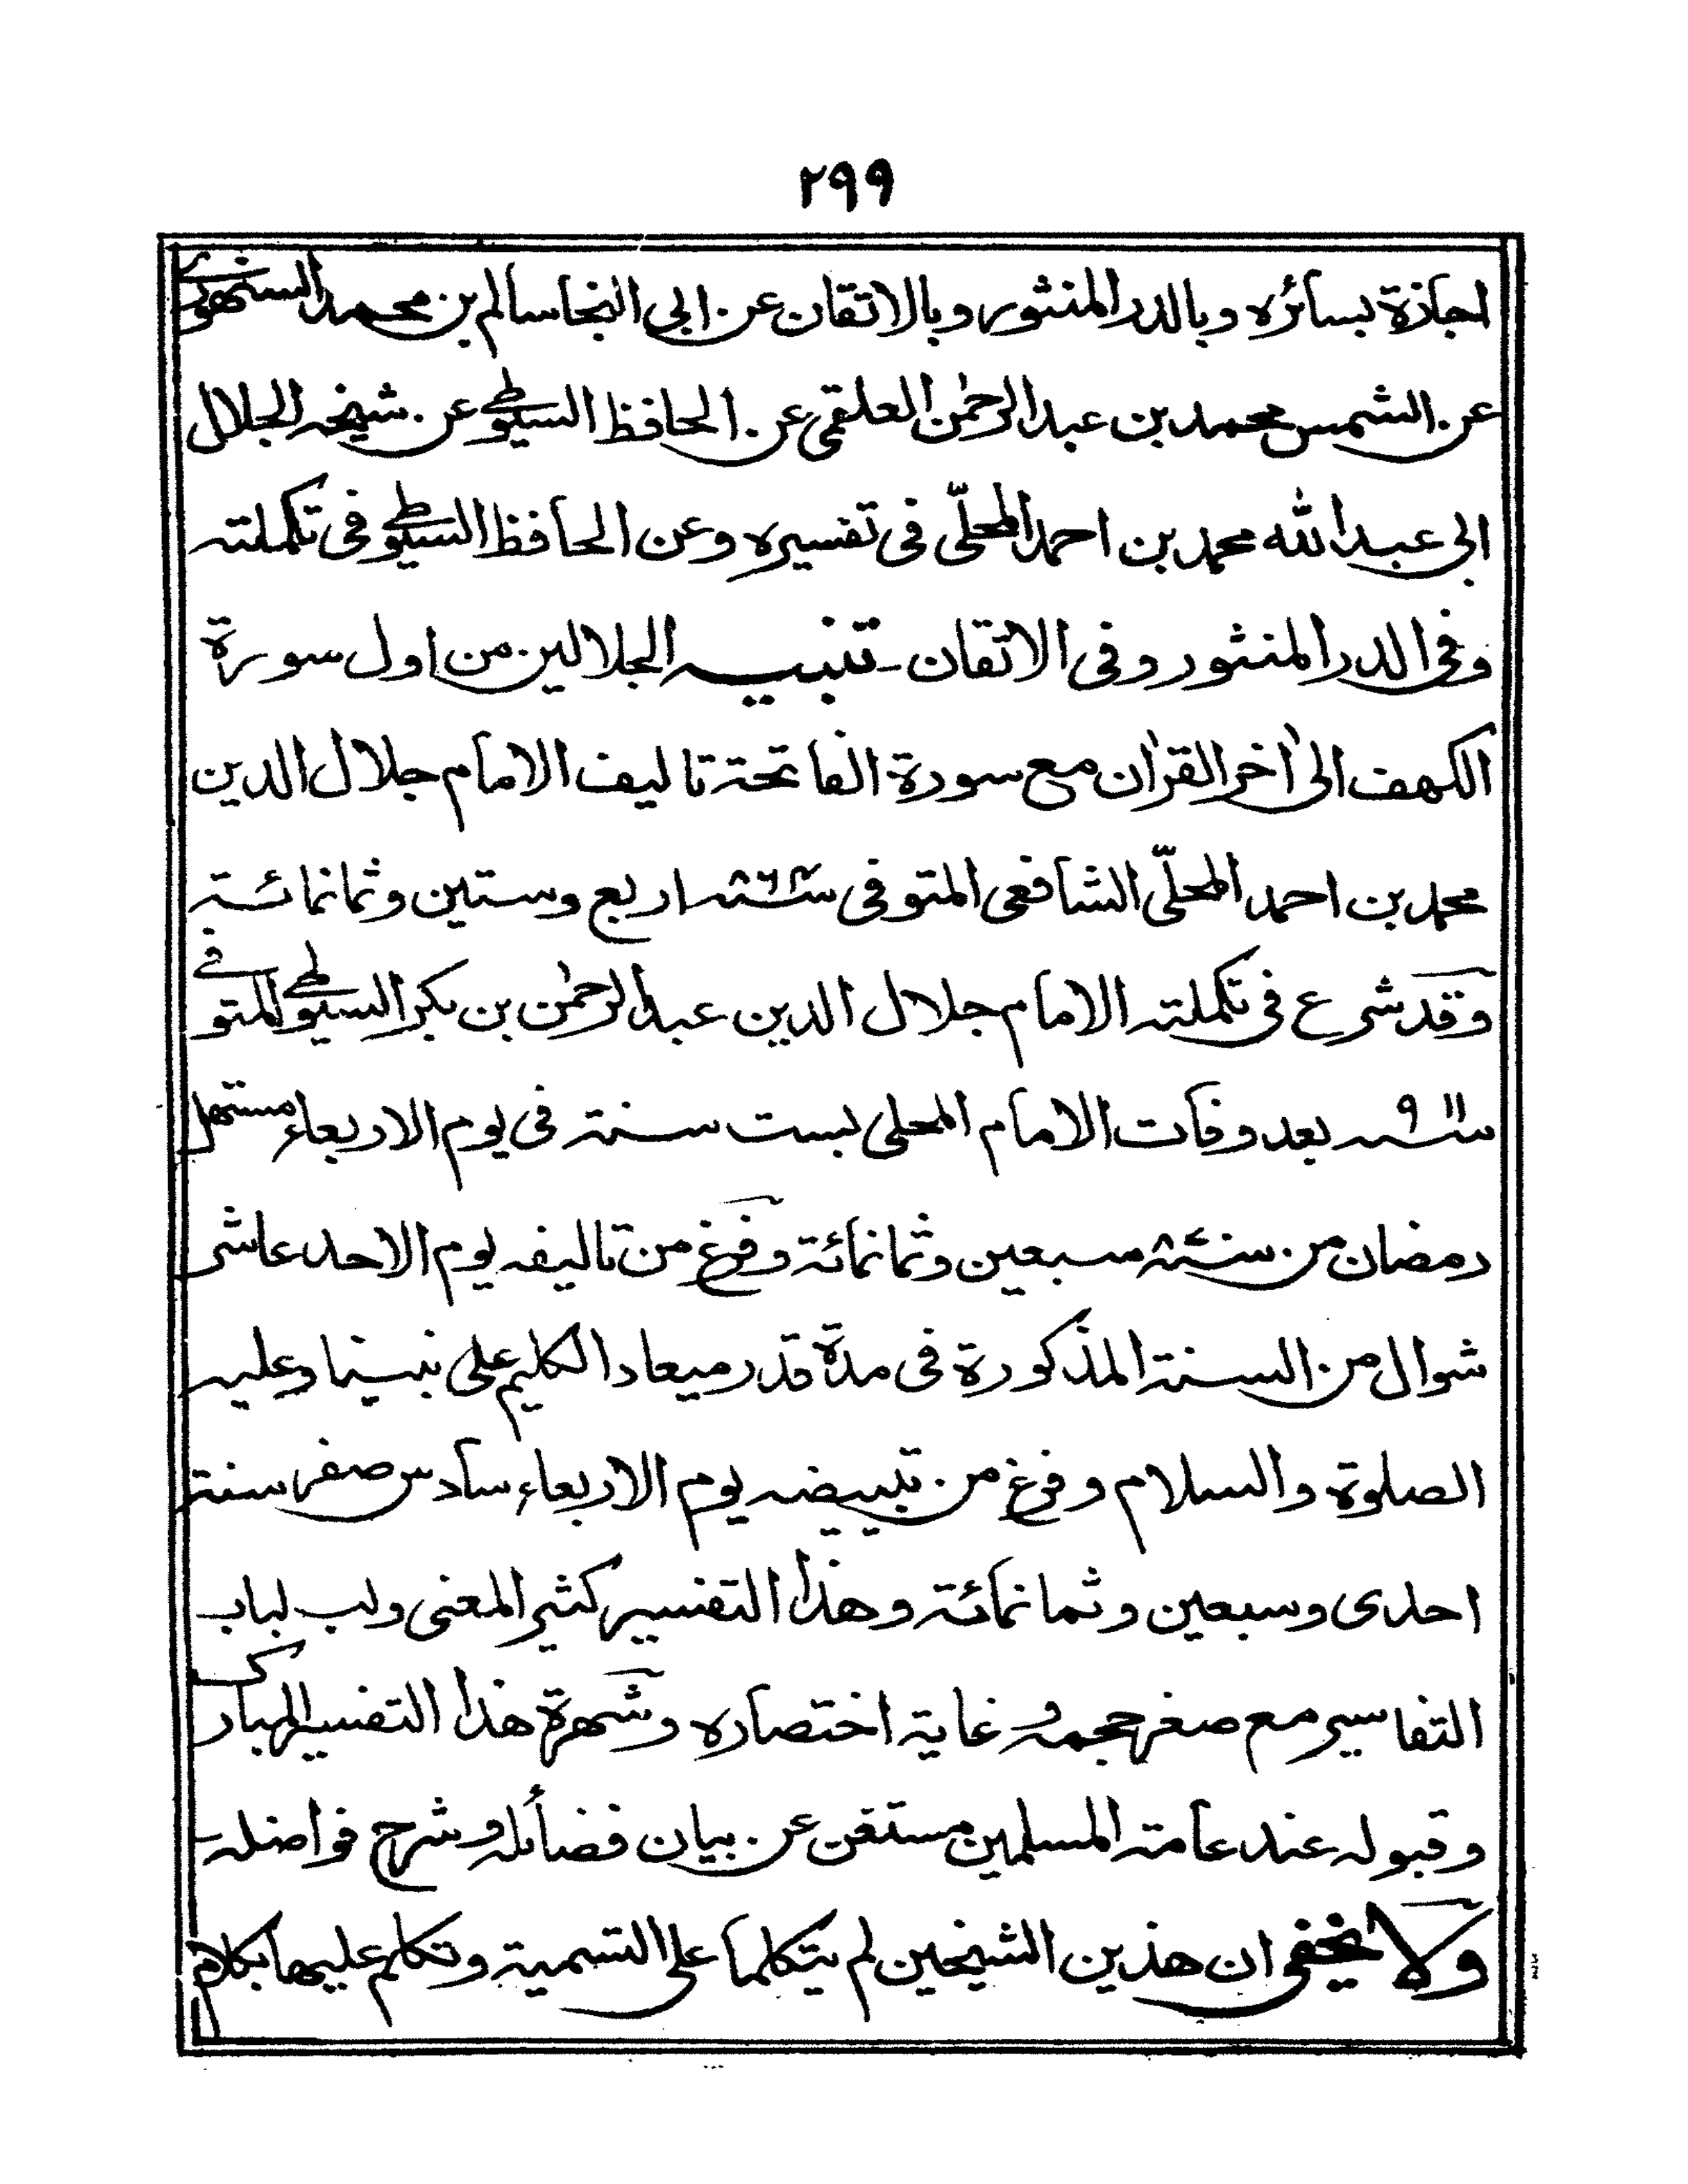 ٢٩٩
اجازة بسائره وبالدر المنثور وبالاتقان عن ابي النجا سالم بن محمد السنهوري
عن الشمس محمد بن عبد الرحمٰن العلقمي عن الحافظ السيوطي عن شيخه الجلال
ابي عبد الله محمد بن احمد المحلّي في تفسيره وعن الحافظ السيوطي في تكملته
وفي الدر المنثور وفي الاتقان - تنبيه الجلالين من اول سورة
الكهف الىٰ اٰخر القراٰن مع سورة الفاتحة تاليف الامام جلال الدين
محمد بن احمد المحلّي الشافعي المتوفى سنة ٨٦٤ اربع وستين وثمانمائة
وقد شرع في تكملته الامام جلال الدين عبد الرحمٰن بن بكر السيوطي المتوفي
سنة ٩١١ بعد وفات الامام المحلي بست سنة في يوم الاربعاء مستهل
رمضان من سنة ٨٧٠ سبعين وثمانمائة وفرغ من تاليفه يوم الاحد عاشر
شوال من السنة المذكورة في مدة قدر ميعاد الكليم على نبينا وعليه
الصلوة والسلام وفرغ من تبييضه يوم الاربعاء سادس صفر سنة
احدى وسبعين وثمانمائة وهذا التفسير كثير المعنى ولب لباب
التفاسير مع صغر حجمه وغاية اختصاره وشهرة هذا التفسير المبارك
وقبوله عند عامة المسلمين مستغن عن بيان فضائله وشرح فواضله
ولا يخفى ان هذين الشيخين لم يتكلما على التسمية وتكلم عليها بكلام